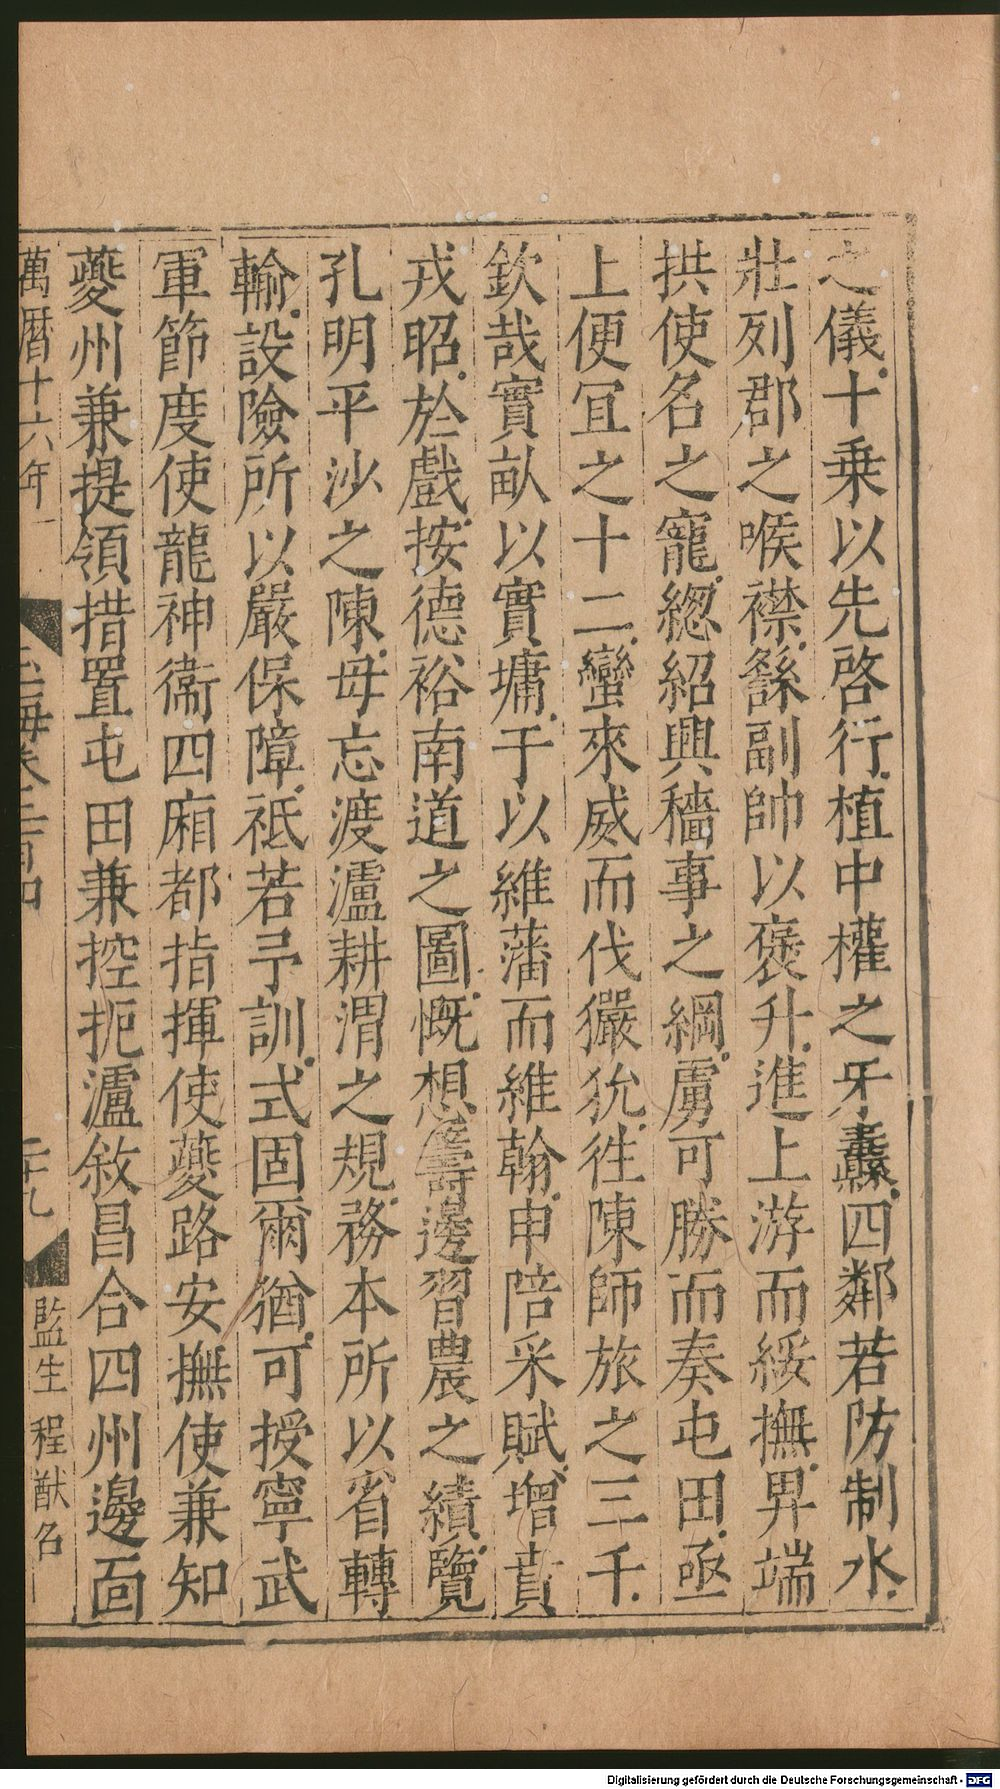 之儀十乗以先啓行植中權之牙纛四鄰若防制水
壯列郡之喉襟繇副帥以褒升進上游而綏撫畀端
拱使名之寵緫紹興穡事之綱虜可勝而奏屯田亟
上便宜之十二蠻來威而伐玁狁徃陳師旅之三千
欽哉實畝以實墉于以維藩而維翰申陪采賦增賁
戎昭於戲按德裕南道之圖慨想籌邊習農之績覽
孔明平沙之陳毋忘渡瀘耕渭之規務本所以省轉
輸設險所以嚴保障祗若予訓式固爾猶可授寧武
軍節度使龍神衞四廂都指揮使夔路安撫使兼知
夔州兼提領措置屯田兼控扼瀘敘昌合四州邊面
萬曆十六年
玉海卷二百四
二十九
監生程猷名
Digitalisierung gefördert durch die Deutsche Forschungsgemeinschaft - DFG